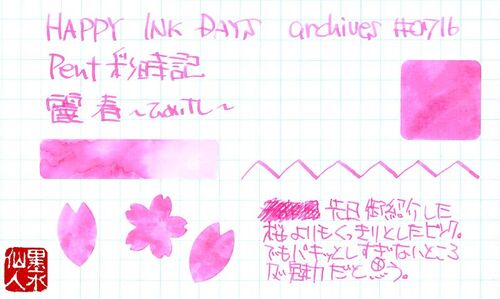 HAPPY INK DAYS archives #0716
Pent 彩時記
春
先日御紹介した
桜よりもくっきりとしたピンク。
でもパキッとしすぎないところ
が魅力だと思う。
墨水
仙人